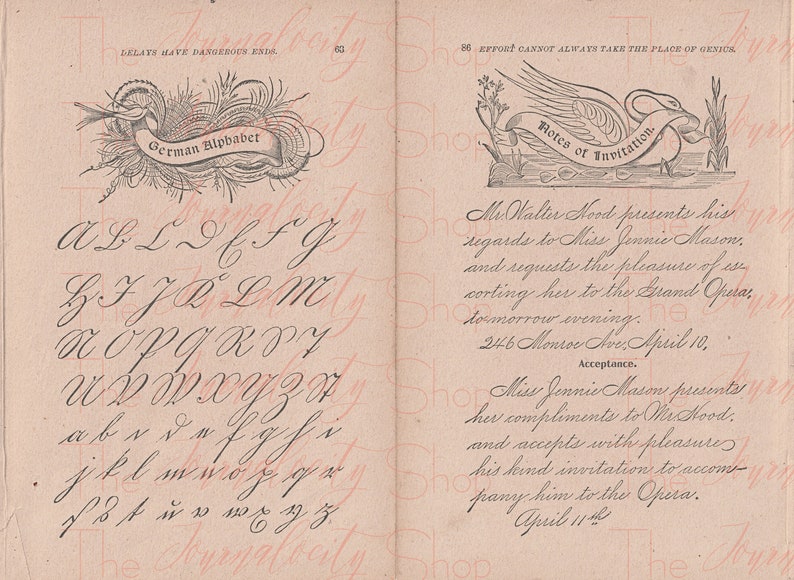 DELAYS HAVE DANGEROUS ENDS. 63
German Alphabet
A B C D E F G
H I J K L M
N O P Q R S T
U V W X Y Z St
a b c d e f g h i
j k l m n o p q r
ſ s t u v w x y z
86 EFFORT CANNOT ALWAYS TAKE THE PLACE OF GENIUS.
Notes of Invitation.
Mr. Walter Hood presents his
regards to Miss Jennie Mason,
and requests the pleasure of es-
corting her to the Grand Opera,
to-morrow evening.
246 Monroe Ave, April 10.
Acceptance.
Miss Jennie Mason presents
her compliments to Mr. Hood,
and accepts with pleasure
his kind invitation to accom-
pany him to the Opera.
April 11th
The Journalocity Shop